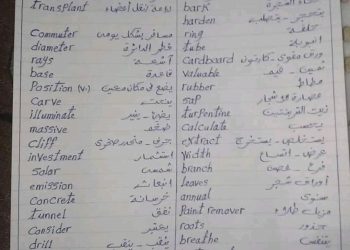 transplant زراعة (نقل أعضاء)
Commuter مسافر بشكل يومى
diameter قطر الدائرة
rays أشعة
base قاعدة
Position (v.) يضع فى مكان معين
Carve ينحت
illuminate يضئ - ينير
massive ضخم
cliff جرف -
investment استثمار
Solar شمسى
emission انبعاث
Concrete خرسانة
tunnel نفق
Consider يعتبر
drill يثقب - ينقب
bark لحاء الشجرة
harden يتحجر - يتصلب
ring حلقة
tube انبوبة
Cardboard ورق مقوى - كارتون
valuable ثمين - قيم
rubber مطاط
sap عصارة
turpentine زيت التربنتين
Calculate يحسب
extract يستخلص - يستخرج
width عرض - اتساع
branch فرع - غصن
leaves أوراق شجر
annual سنوى
Paint remover مزيل طلاء
roots جذور
breathe يتنفس